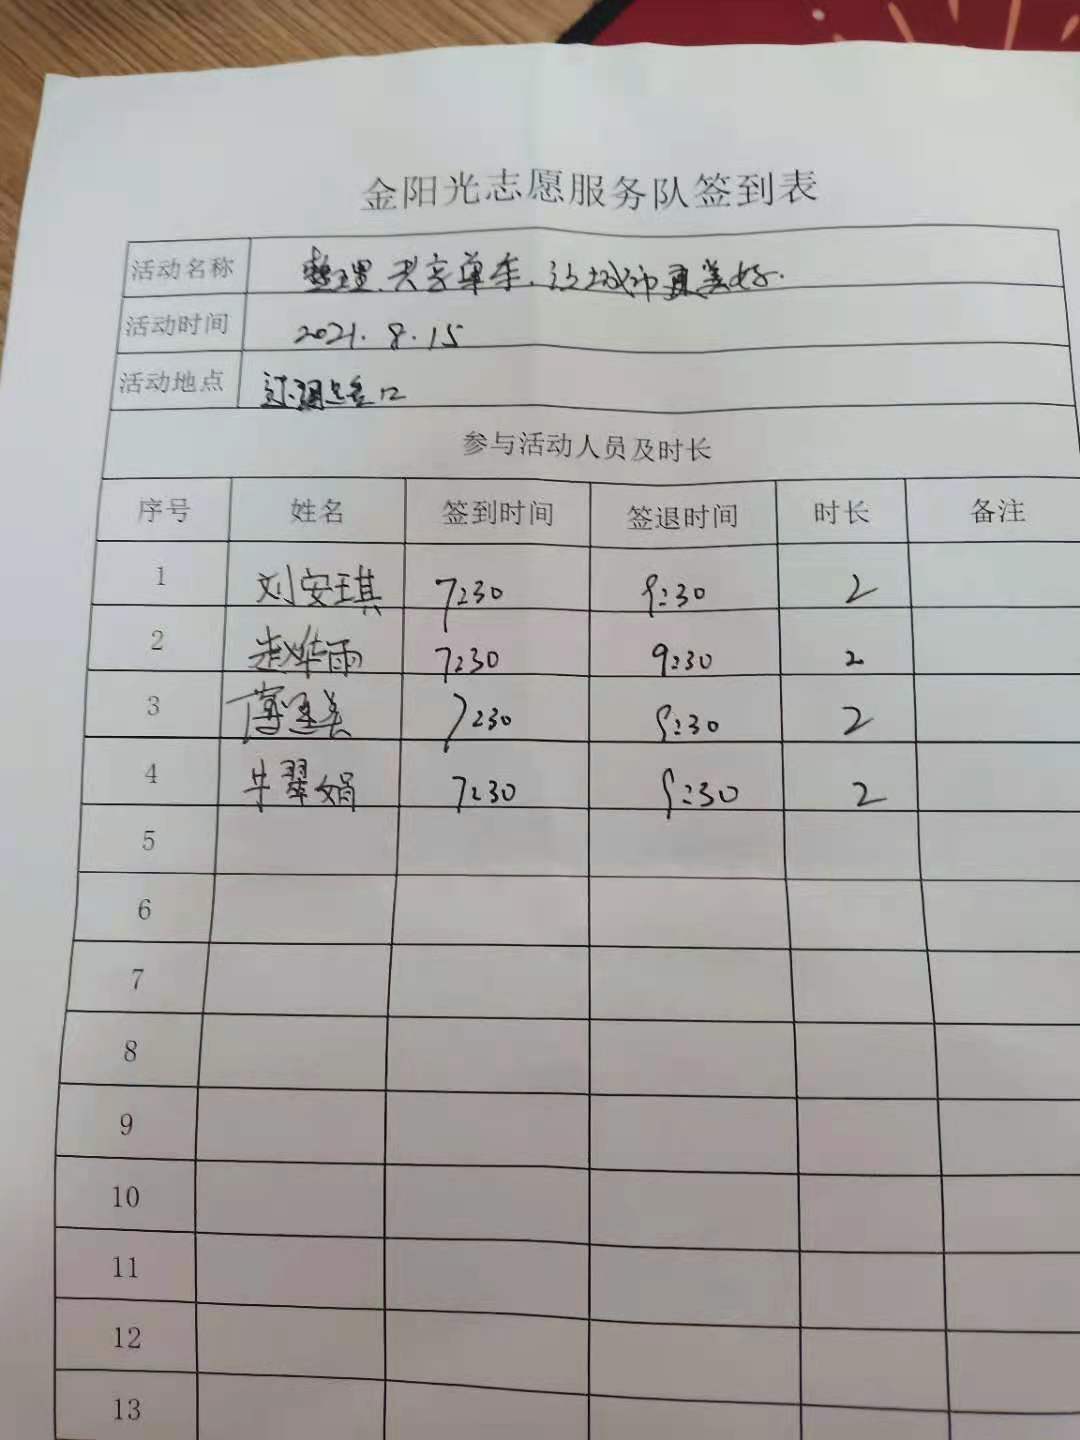 金阳光志愿服务队签到表
活动名称 整理共享单车,让城市更美好.
活动时间 2021.8.15
活动地点 口
参与活动人员及时长
序号 姓名 签到时间 签退时间 时长 备注
1 刘安琪 7:30 9:30 2
2 赵华雨 7:30 9:30 2
3 7:30 9:30 2
4 牛翠娟 7:30 9:30 2
5
6
7
8
9
10
11
12
13